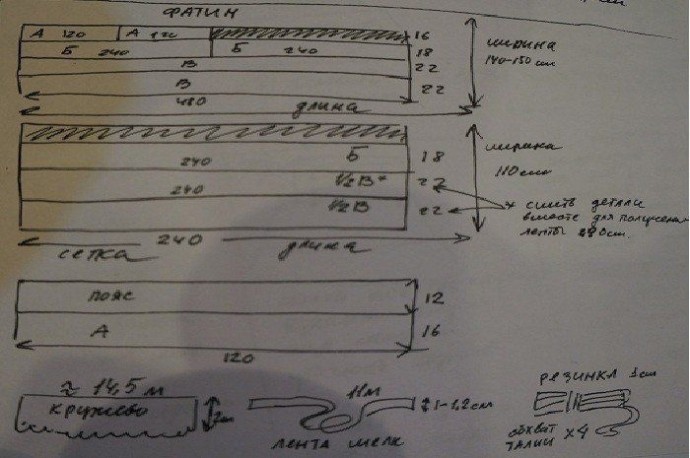 ФАТИН
А 120 А 120 16
Б 240 Б 240 18
В 22
В 22
480 длина
ширина
140-150 см
Б 240 18
240 1/2 В* 22
1/2 В 22
ширина
110 см
* сшить детали
вместе для получения
ленты 480 см.
240
сетка длина
пояс 12
А 16
120
≈ 14,5 м
кружево
11м
1-1,2см
лента шелк
резинка 1см
обхват
талии х4